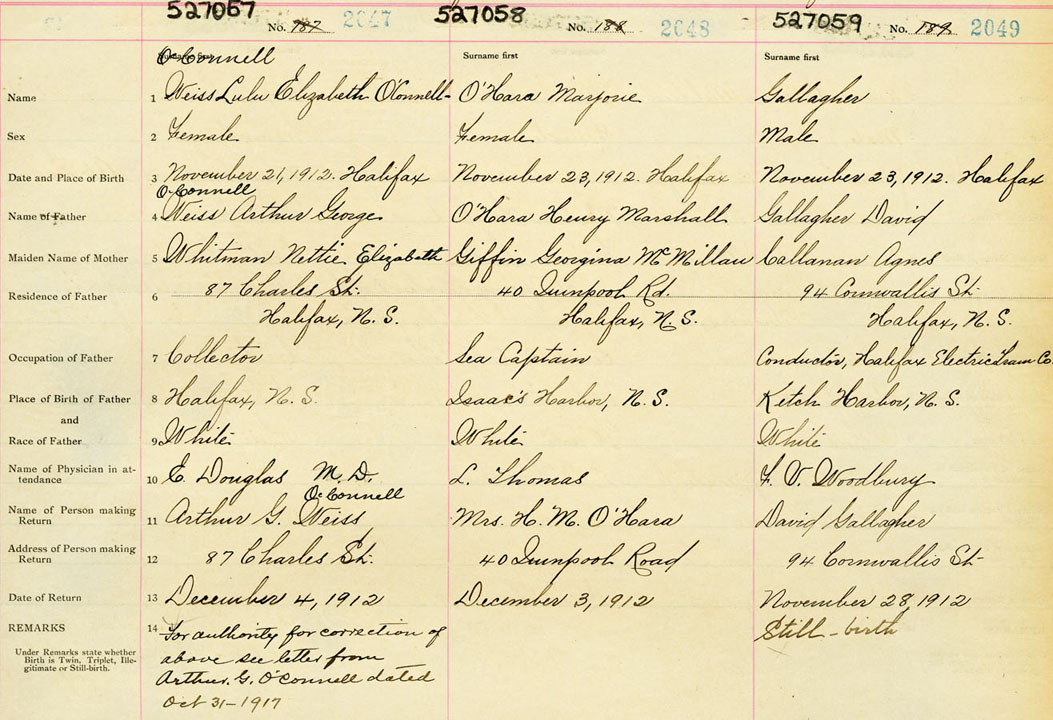 527057 No. 187 2047 527058 No. 188 2048 527059 No. 189 2049
O'Connell
Surname first Surname first Surname first
Name 1 Weiss Lulu Elizabeth O'Connell O'Hara Marjorie Gallagher
Sex 2 Female Female Male
Date and Place of Birth 3 November 21, 1912. Halifax November 23, 1912. Halifax November 23, 1912. Halifax
O'Connell
Name of Father 4 Weiss Arthur George O'Hara Henry Marshall Gallagher David
Maiden Name of Mother 5 Whitman Nettie Elizabeth Giffin Georgina McMillan Callanan Agnes
Residence of Father 6 87 Charles St. 40 Quinpool Rd. 94 Cornwallis St.
Halifax, N.S. Halifax, N.S. Halifax, N.S.
Occupation of Father 7 Collector Sea Captain Conductor, Halifax Electric Tram Co.
Place of Birth of Father 8 Halifax, N.S. Isaac's Harbor, N.S. Ketch Harbor, N.S.
and
Race of Father 9 White White White
Name of Physician in at-
tendance 10 E. Douglas M.D. L. Thomas F. V. Woodbury
O'Connell
Name of Person making
Return 11 Arthur G. Weiss Mrs. H. M. O'Hara David Gallagher
Address of Person making
Return 12 87 Charles St. 40 Quinpool Road 94 Cornwallis St.
Date of Return 13 December 4, 1912 December 3, 1912 November 28, 1912
REMARKS 14 For authority for correction of Still-birth
Under Remarks state whether
Birth is Twin, Triplet, Ille-
gitimate or Still-birth.
above see letter from
Arthur. G. O'Connell dated
Oct 31-1917